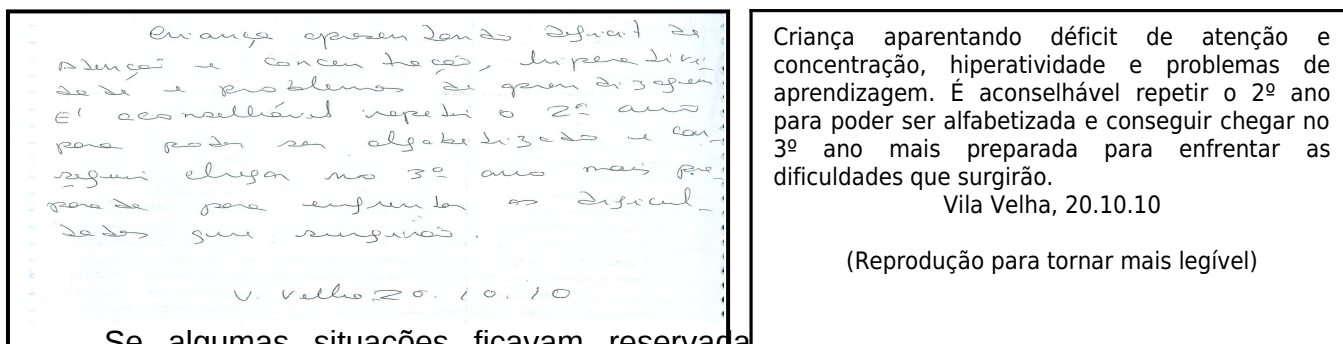 Criança apresentando deficit de
atenção e concentração, hiperativi
dade e problemas de aprendizagem
E' aconselhável repetir o 2º ano
para poder ser alfabetizado e con-
seguir chegar no 3º ano mais pre
parada para enfrentar as dificul_
dades que surgirão.
V. Velha 20.10.10
Criança aparentando déficit de atenção e
concentração, hiperatividade e problemas de
aprendizagem. É aconselhável repetir o 2º ano
para poder ser alfabetizada e conseguir chegar no
3º ano mais preparada para enfrentar as
dificuldades que surgirão.
Vila Velha, 20.10.10
(Reprodução para tornar mais legível)
Se algumas situações ficavam reservada